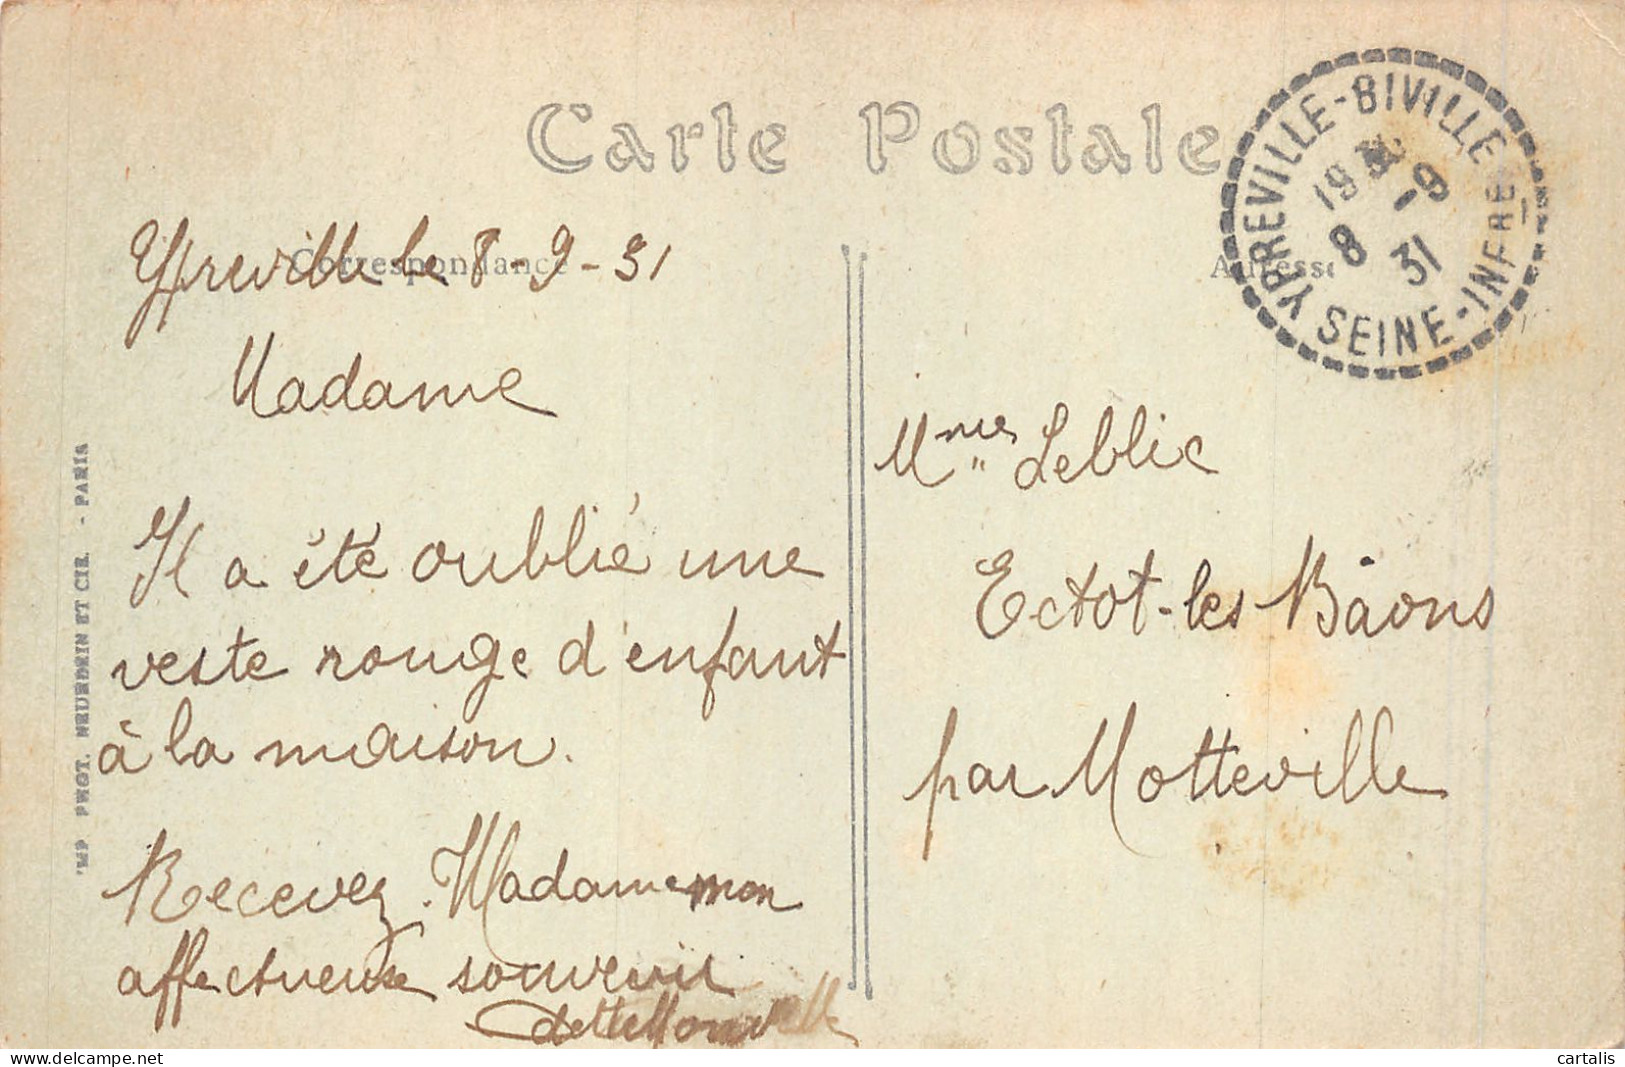 Carte Postale
YPREVILLE-BIVILLE
19 -9
8 31
SEINE-INFRE
Correspondance
Adresse
Ypreville le 8-9-31
Madame
Il a été oublié une
veste rouge d'enfant
à la maison.
Recevez Madame mon
affectueux souvenir
Mmes Leblic
Ectot-les-Bâons
par Motteville
IMP PHOT. NEURDEIN ET CIE. - PARIS
cartalis